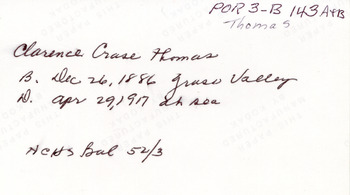 POR 3-B 143A+B
Thomas
Clarence Crase Thomas
B. Dec 26, 1886 Grass Valley
D. Apr 29, 1917 at sea
NCHS Bul 52/3